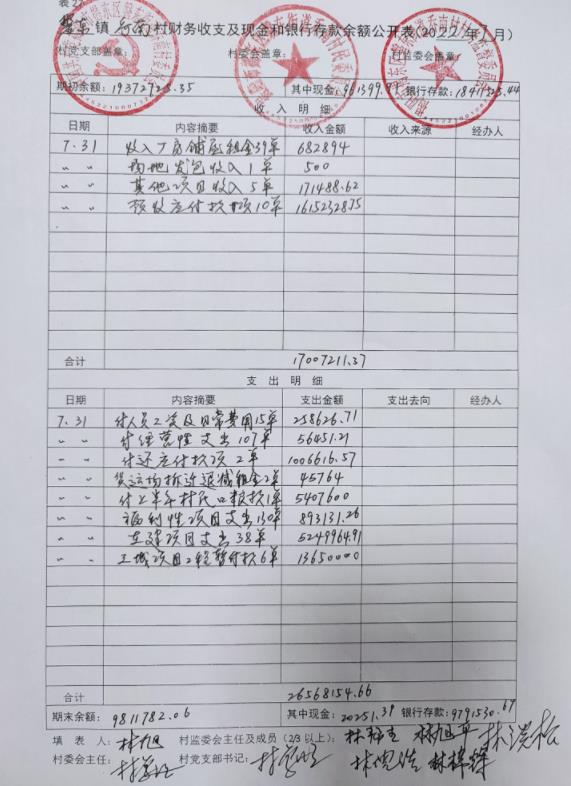 表2
磐东镇乔南村财务收支及现金和银行存款余额公开表(2022年7月)
村党支部盖章: 村委会盖章: 村监委会盖章:
期初余额: 19372725.35 其中现金: 961399.91 银行存款: 18411325.44
收入明细
日期 内容摘要 收入金额 收入来源 经办人
7.31 收入厂房铺屋租金39单 682894
〃 〃 场地发包收入1单 500
〃 〃 其他项目收入5单 171488.62
〃 〃 预收应付款项10单 16152328.75
合计 17007211.37
支出明细
日期 内容摘要 支出金额 支出去向 经办人
7.31 付人员工资及日常费用15单 258626.71
〃 〃 付经营性支出107单 56451.21
〃 〃 付还应付款项2单 1006616.57
〃 〃 货运场拆迁退减租金2单 45764
〃 〃 付上半年村民口粮款1单 5407600
〃 〃 福利性项目支出130单 893131.26
〃 〃 在建项目支出38单 5249964.91
〃 〃 工城项目工程暂付款6单 13650000
合计 26568154.66
期末余额: 9811782.06 其中现金: 20251.39 银行存款: 9791530.67
填表人: 林旭 村监委会主任及成员(2/3以上):
村委会主任: 村党支部书记: